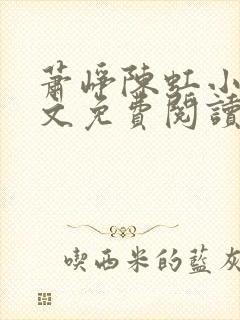 蕭崢陳虹小
文免費閱讀
喫西米的藍灰